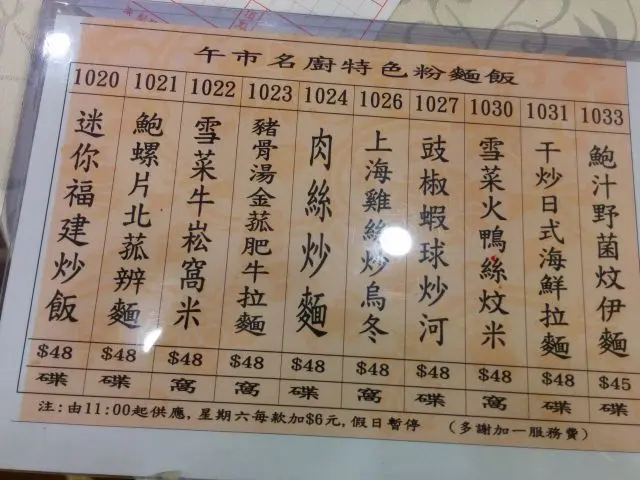 午市名廚特色粉麵飯
1020 1021 1022 1023 1024 1026 1027 1030 1031 1033
迷你福建炒飯
鮑螺片北菰辨麵
雪菜牛崧窩米
豬骨湯金菰肥牛拉麵
肉絲炒麵
上海雞絲炒烏冬
豉椒蝦球炒河
雪菜火鴨絲炆米
干炒日式海鮮拉麵
鮑汁野菌炆伊麵
$48 $48 $48 $48 $48 $48 $48 $48 $48 $45
碟 碟 窩 窩 碟 窩 碟 窩 碟 碟
注:由11:00起供應,星期六每款加$6元,假日暫停 (多謝加一服務費)